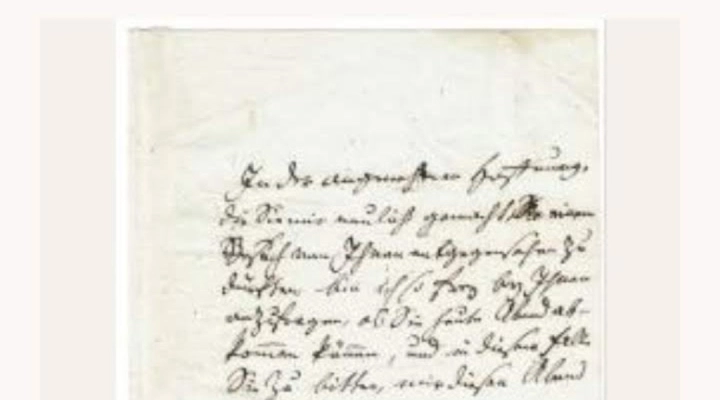 In der angenehmen Hoffnung,
die Sie mir neulich gemacht einem
Besuch von Ihnen entgegensehen zu
dürfen, bin ich so frey bey Ihnen
anzufragen, ob Sie heute Abend ab-
kommen können, und in diesem Falle
Sie zu bitten, mir diesen Abend